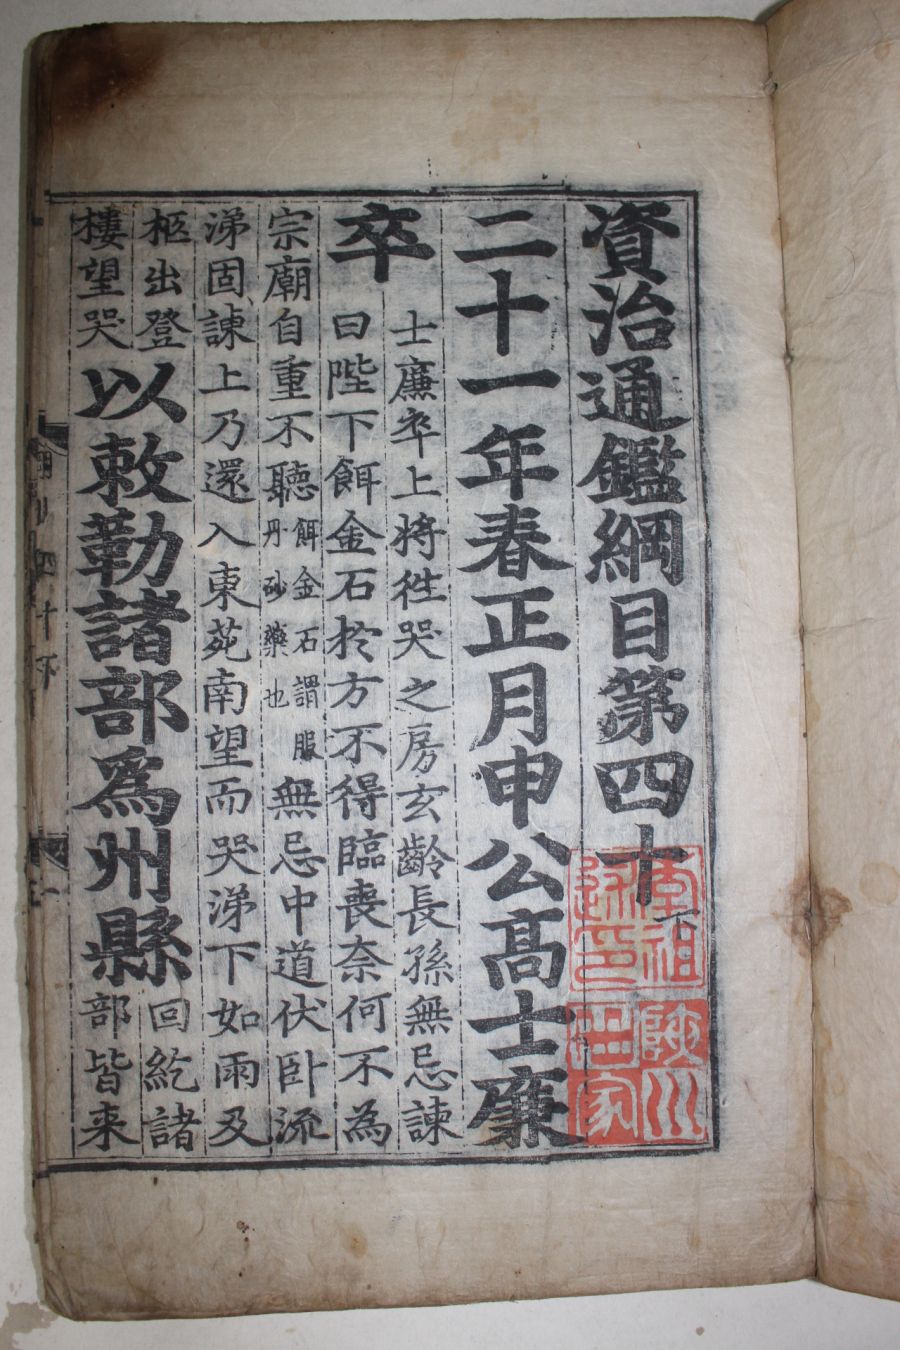 資治通鑑綱目第四十下
二十一年春正月申公高士廉
卒
士廉卒上將往哭之房玄齡長孫無忌諫
曰陛下餌金石於方不得臨喪奈何不為
宗廟自重不聽
餌金石謂服
丹砂藥也
無忌中道伏卧流
涕固諫上乃還入東苑南望而哭涕下如雨及
柩出登
樓望哭
以敕勒諸部爲州縣
回紇諸
部皆来
陜川
世家